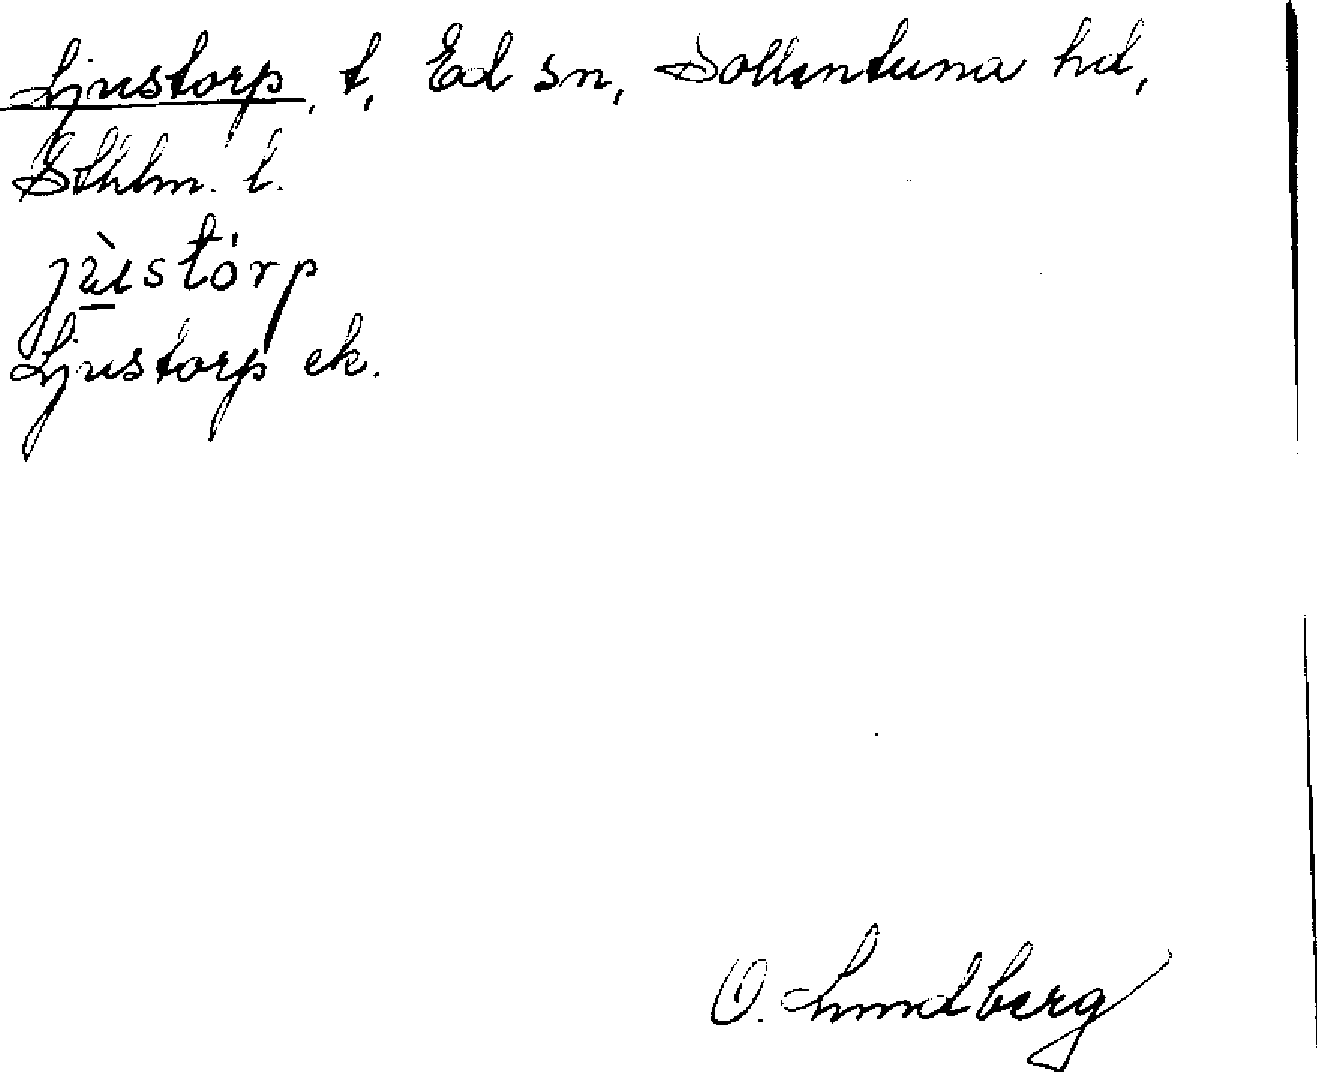 Ljustorp, t, Ed sn, Sollentuna hd,
Sthlm. l.
jùstórp
Ljustorp ek.
O. Lundberg